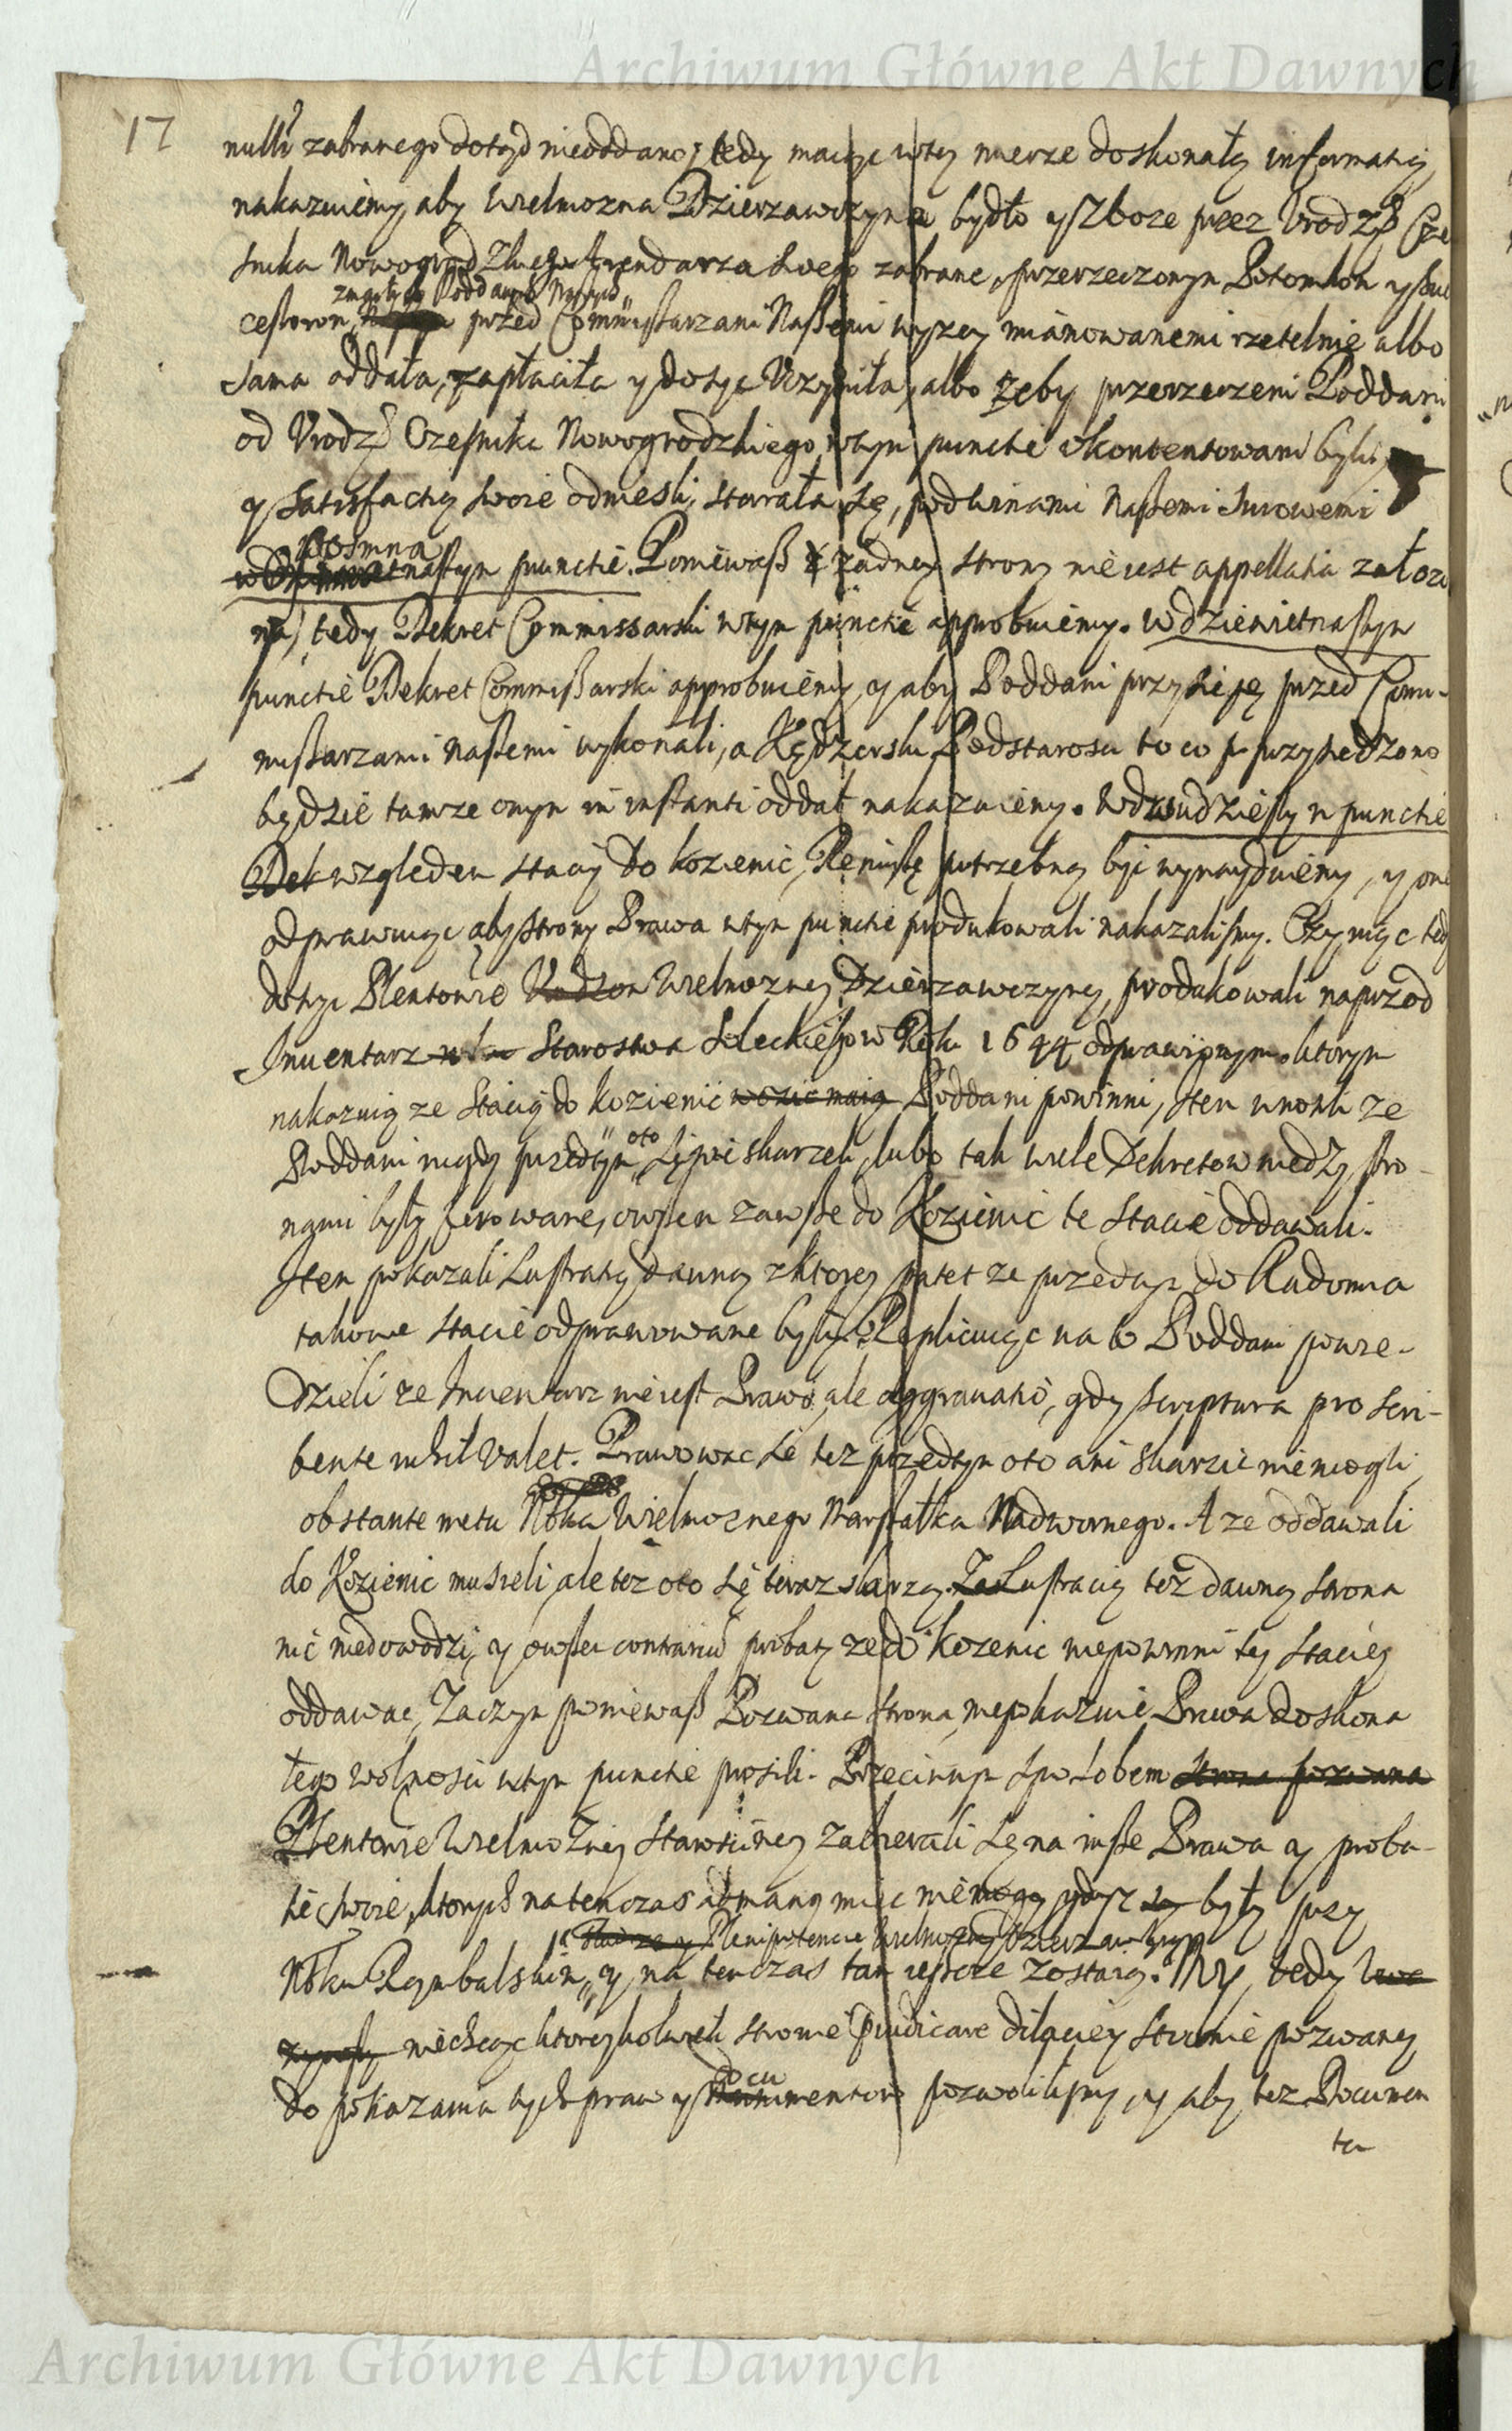 Archiwum Główne Akt Dawnych
17
zabranego dotąd nieoddano, tedy maiąc wtey mierze doskonałą informatią
nakazuiemy, aby Wielmozna Dzierzawczyna bydło y zboze przez Vrodz.
snika Nowogrodzkiego Arendarza swego zabrane, przerzeczonym Potomkom y suc
zmarłych Poddanych
cessorom przed Commissarzami Naßemi wyzey mianowanemi rzetelnie albo
sama oddała, zapłaciła y dosyc Vczyniła, albo zeby przerzeczeni Poddani
od Vrodz. Czesnika Nowogrodzkiego wtym punctie vkontentowani byli,
y satisfactią swoie odniesli, starała się, pod winami Naßemi surowemi
wosmna
nastym punctie. Poniewaß z zadney strony nie iest appellatia załozo
na, tedy Dekret Commissarski wtym punctie approbuiemy. W dziewietnastym
punctie Dekret Commißarski approbuiemy, y aby Poddani przysięgę przed Com-
mißarzami Naßemi wykonali, a Kędzierski Podstarosci to co przysiedzono
będzie tamze onym in instanti oddał nakazuiemy. W dwudziestym punctie
Dek względem stacij do Kozienic, Remissę potrzebną byc wynayduiemy, y one
odprawuiąc aby strony Prawa wtym punctie produkowali nakazalismy. Czyniąc tedy
dosyc Plentowie Wielmozney Dzierzawczyney, produkowali naprzod
Inuentarz Starostwa Soleckiego w Roku 1644 odprawiony, wktorym
nakazuią ze Stacią do Kozienic wozic maią Poddani powinni, Item wnosili ze
Poddani nigdy przedtym oto się nie skarzeli, lubo tak wiele Dekretow miedzy stro-
nami były ferowane, owsem zawsze do Kozienic te stacie oddawali.
Item pokazali Lustratią dawną zktorey patet ze przedtym do Radomia
takowe stacie odprawowane były. Replicuiąc na to Poddani powie-
dzieli ze Inuentarz nie iest Prawo, ale aggrauatio, gdy scriptura pro scri-
bente nihil valet. Prawowac się tez przedtym oto ani skarzic niemogli
obstante metu Wielmoznego Marszałka Nadwornego. A ze oddawali
do Kozienic musieli, ale tez oto się teraz skarzą. Za Lustracią tez dawną strona
nic niedowodzi, y owßem contrarium probat, ze do Kozienic niepowinni tey staciey
oddawac, Zaczym poniewaß Pozwana strona niepokazuie Prawa doskona
łego wolnosci wtym punctie prosili. Przeciwnym sposobem strona pozwana
Plentowie Wielmozney Starosciney zabierali się na inße Prawa y proba-
tie swoie, ktorych natenczas miec niemogą, gdysz były przy
Plenipotencie Wielmozney Dzierzawczyney
Rembalskim, y na tenczas tam iescze zostaią. My tedy
niechcąc ktoreykolwiek stronie praeiudicare dilacieij stronie pozwaney
docu
do pokazania tych praw y mentow pozwolilismy, y aby tez Documen
ta
Archiwum Główne Akt Dawnych